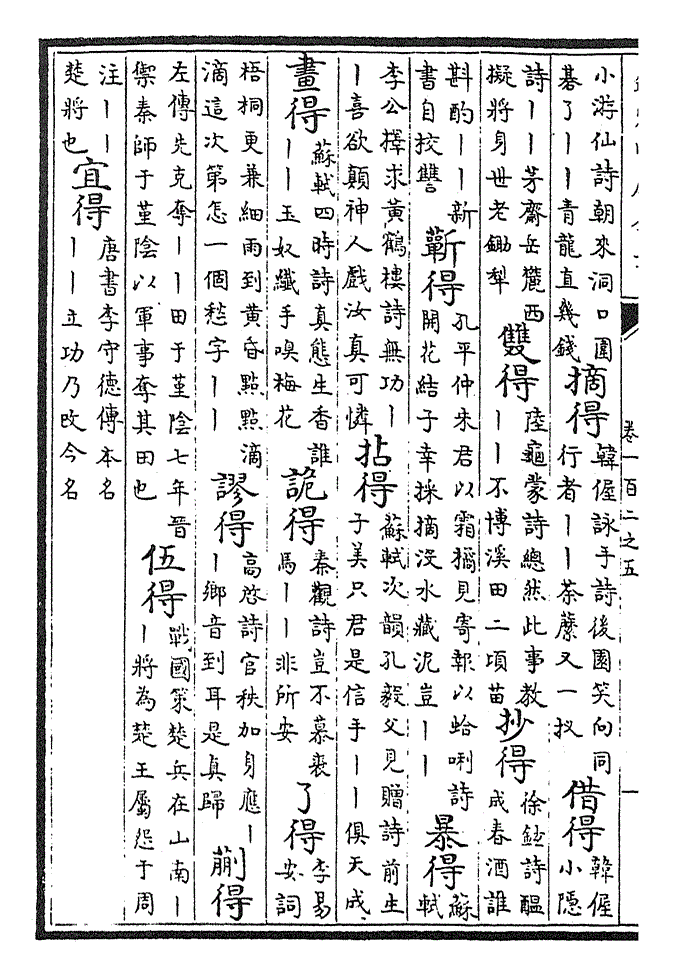 卷一百二之五
小游仙詩朝來洞口圍
棊了丨丨青龍直幾錢
摘得
韓偓詠手詩後園笑向同
行者丨丨荼蘼又一扠
借得
韓偓
小隱
詩丨丨茅齋岳麓西
擬將身世老鋤犁
雙得
陸龜蒙詩總然此事教
丨丨不博溪田二頃苗
抄得
徐鉉詩醖
成春酒誰
斟酌丨丨新
書自挍讐
蘄得
孔平仲朱君以霜橘見寄報以蛤唎詩
開花結子幸採摘沒水藏泥豈丨丨
暴得
蘇
軾
李公擇求黃鶴樓詩無功丨
丨喜欲顛神人戲汝真可憐
拈得
蘇軾次韻孔毅父見贈詩前生
子美只君是信手丨丨俱天成
畫得
蘇軾四時詩真態生香誰
丨丨玉奴纖手嗅梅花
詭得
秦觀詩豈不慕裘
馬丨丨非所安
了得
李易
安詞
梧桐更兼細雨到黃昏點點滴
滴這次第怎一個愁字丨丨
謬得
高啟詩官秩加身應丨
丨鄉音到耳是真歸
蒯得
左傳先克奪丨丨田于堇陰七年晉
禦秦師于堇陰以軍事奪其田也
伍得
戰國策楚兵在山南丨
丨將為楚王屬怨于周
注丨丨
楚將也
宜得
唐書李守德傳本名
丨丨立功乃改今名